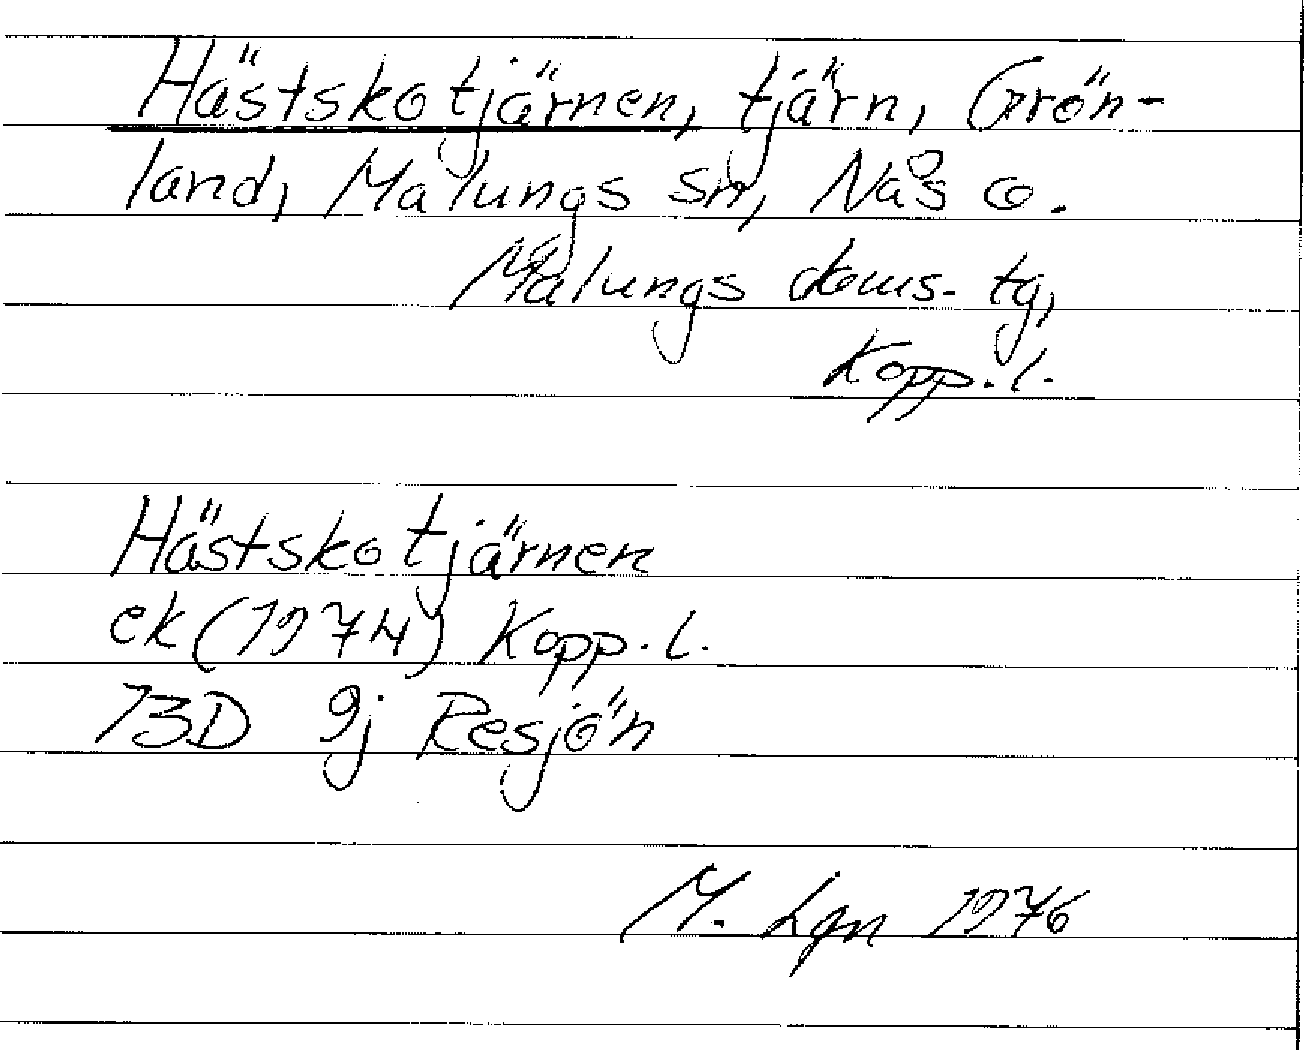 Hästskotjärnen, tjärn, Grön-
land, Malungs sn, Nås o.
Malungs doms. tg,
Kopp. l.
Hästskotjärnen
ek (1974) Kopp. l.
13D 9j Resjön
M. Lgn 1976